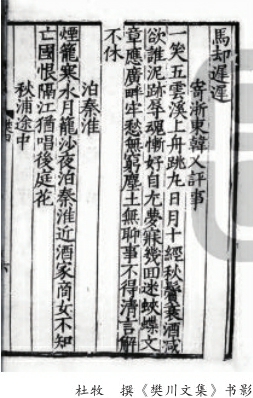 馬却遲遲
寄浙東韓乂評事
一笑五雲溪上舟跳丸日月十經秋鬢衰酒减
欲誰泥跡辱魂慚好自尤夢寐幾回迷蛺蝶文
章應廣畔牢愁無窮塵土無聊事不得清言解
不休
泊秦淮
煙籠寒水月籠沙夜泊秦淮近酒家商女不知
亡國恨隔江猶唱後庭花
秋浦途中
杜牧 撰《樊川文集》书影